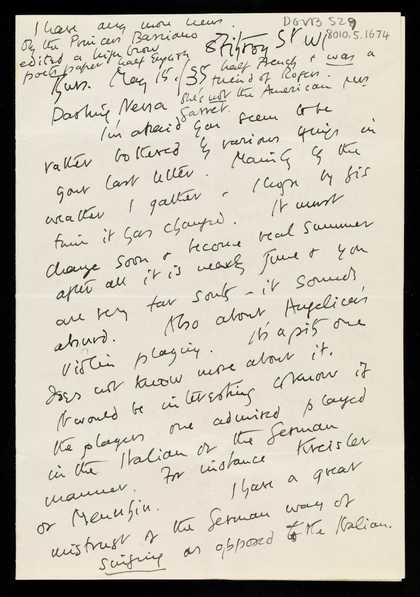 I have any more news.
DGVB3 S29
8010.5.1674
By the Princess Bassiano
edited a highbrow
poetry paper half English half French & was a
friend of Rogers.
She's not the American
Garret.
8 Fitzroy St W1
Thurs. May 16. /35
Darling Nessa
I'm afraid you seem to be
rather bothered by various things in
your last letter. Mainly by the
weather I gather & I hope by this
time it has changed. It must
change soon & become real summer
after all it is nearly June & you
are very far south – it sounds
absurd. Also about Angelica's
violin playing. It's a pity one
does not know more about it.
It would be interesting to know if
the players one admired played
in the Italian or the German
manner. For instance Kreisler
or Menuhin. I have a great
mistrust of the German way of
singing as opposed to the Italian.